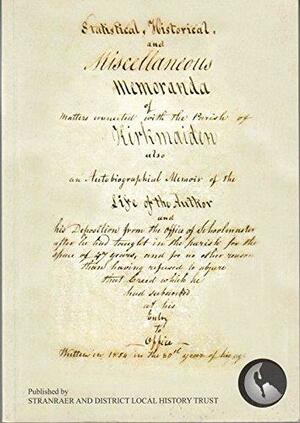 Statistical, Historical,
and
Miscellaneous
Memoranda
of
Matters connected with the Parish of
Kirkmaiden
also
an Autobiographical Memoir of the
Life of the Author
and
his Deposition from the Office of Schoolmaster
after he had taught in the parish for the
space of 47 years, and for no other reason
than having refused to abjure
that Creed which he
had subscribed
at his
Entry
to
Office
Written in 1854 in the 80th year of his age
Published by
STRANRAER AND DISTRICT LOCAL HISTORY TRUST